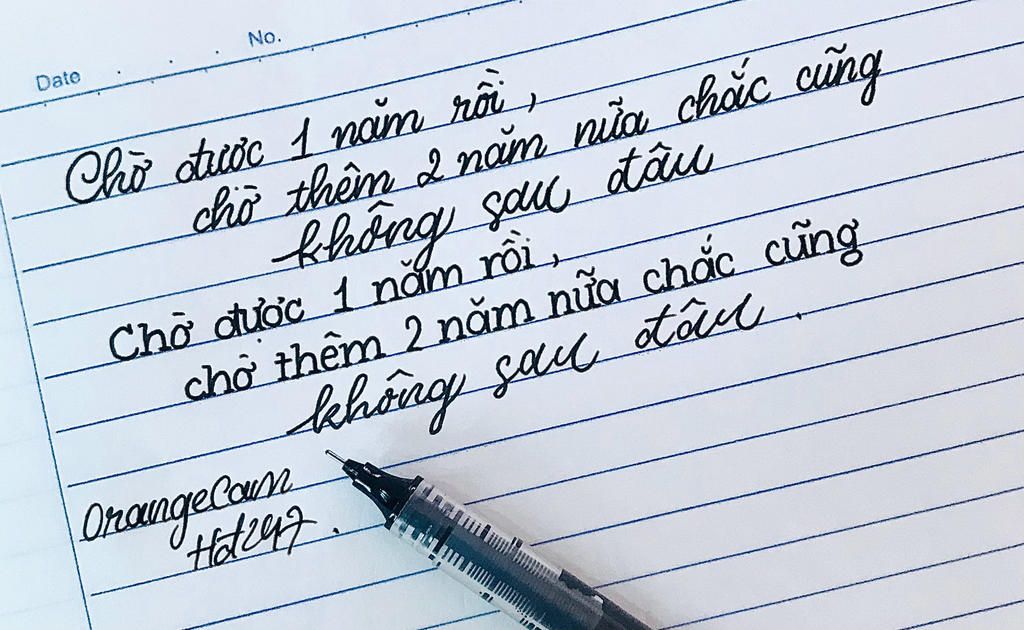 Date No.
Chờ được 1 năm rồi,
chờ thêm 2 năm nữa chắc cũng
không sau đâu
Chờ được 1 năm rồi,
chờ thêm 2 năm nữa chắc cũng
không sau đâu.
OrangeCam
Hot247.